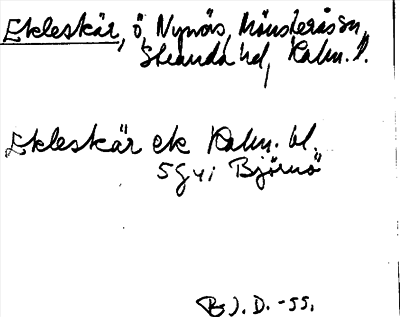 Ekleskär, ö, Nynäs, Mönsterås sn,
Stranda hd, Kalm. l.
Ekleskär ek Kalm. bl.
5 g vi Björnö
J. D. -55.